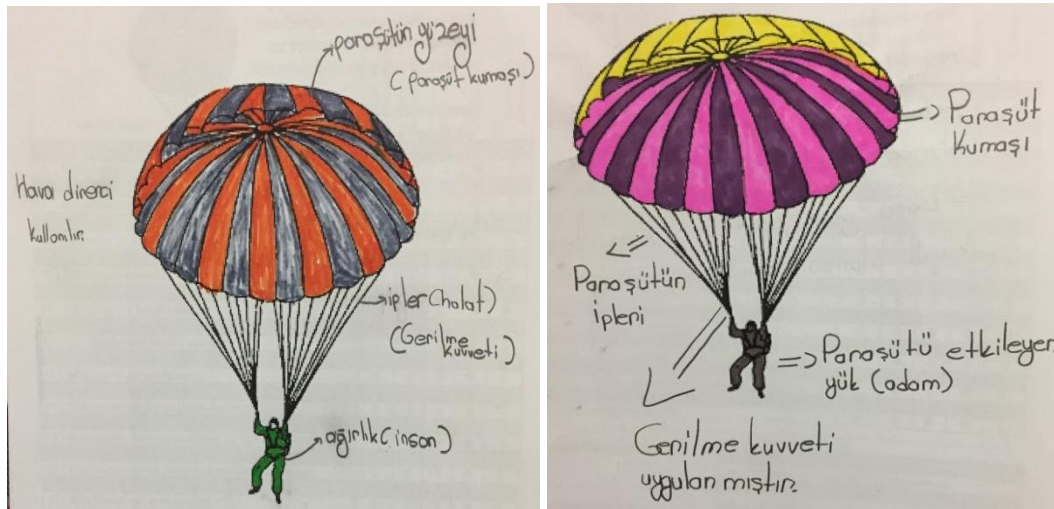 paraşütün yüzeyi
(paraşüt kumaşı)
Hava direnci
kullanılır.
ipler(halat)
(Gerilme
kuvveti)
ağırlık(insan)
Paraşüt
Kumaşı
Paraşütün
ipleri
Paraşütü etkileyen
yük (adam)
Gerilme kuvveti
uygulanmıştır.